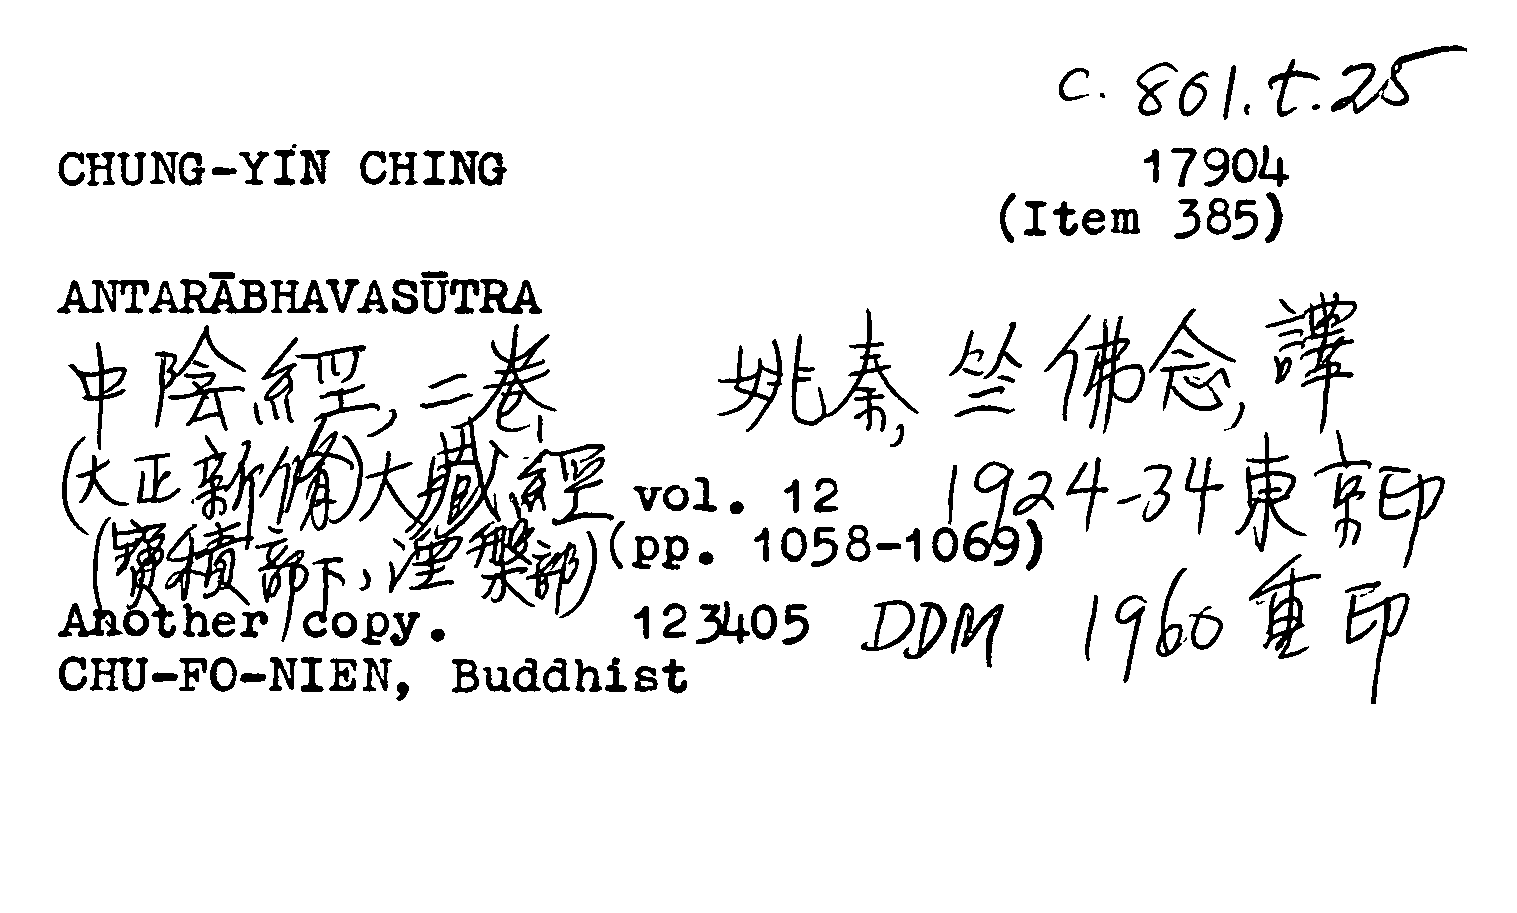 C. 861.t.25
CHUNG-YIN CHING 17904
(Item 385)
ANTARĀBHAVASŪTRA
中陰經, 二卷 姚秦, 竺佛念, 譯
(大正新脩)大藏經 vol. 12 1924-34東京印
(寶積部下, 涅槃部)(pp. 1058-1069)
Another copy. 123405 DDM 1960重印
CHU-FO-NIEN, Buddhist